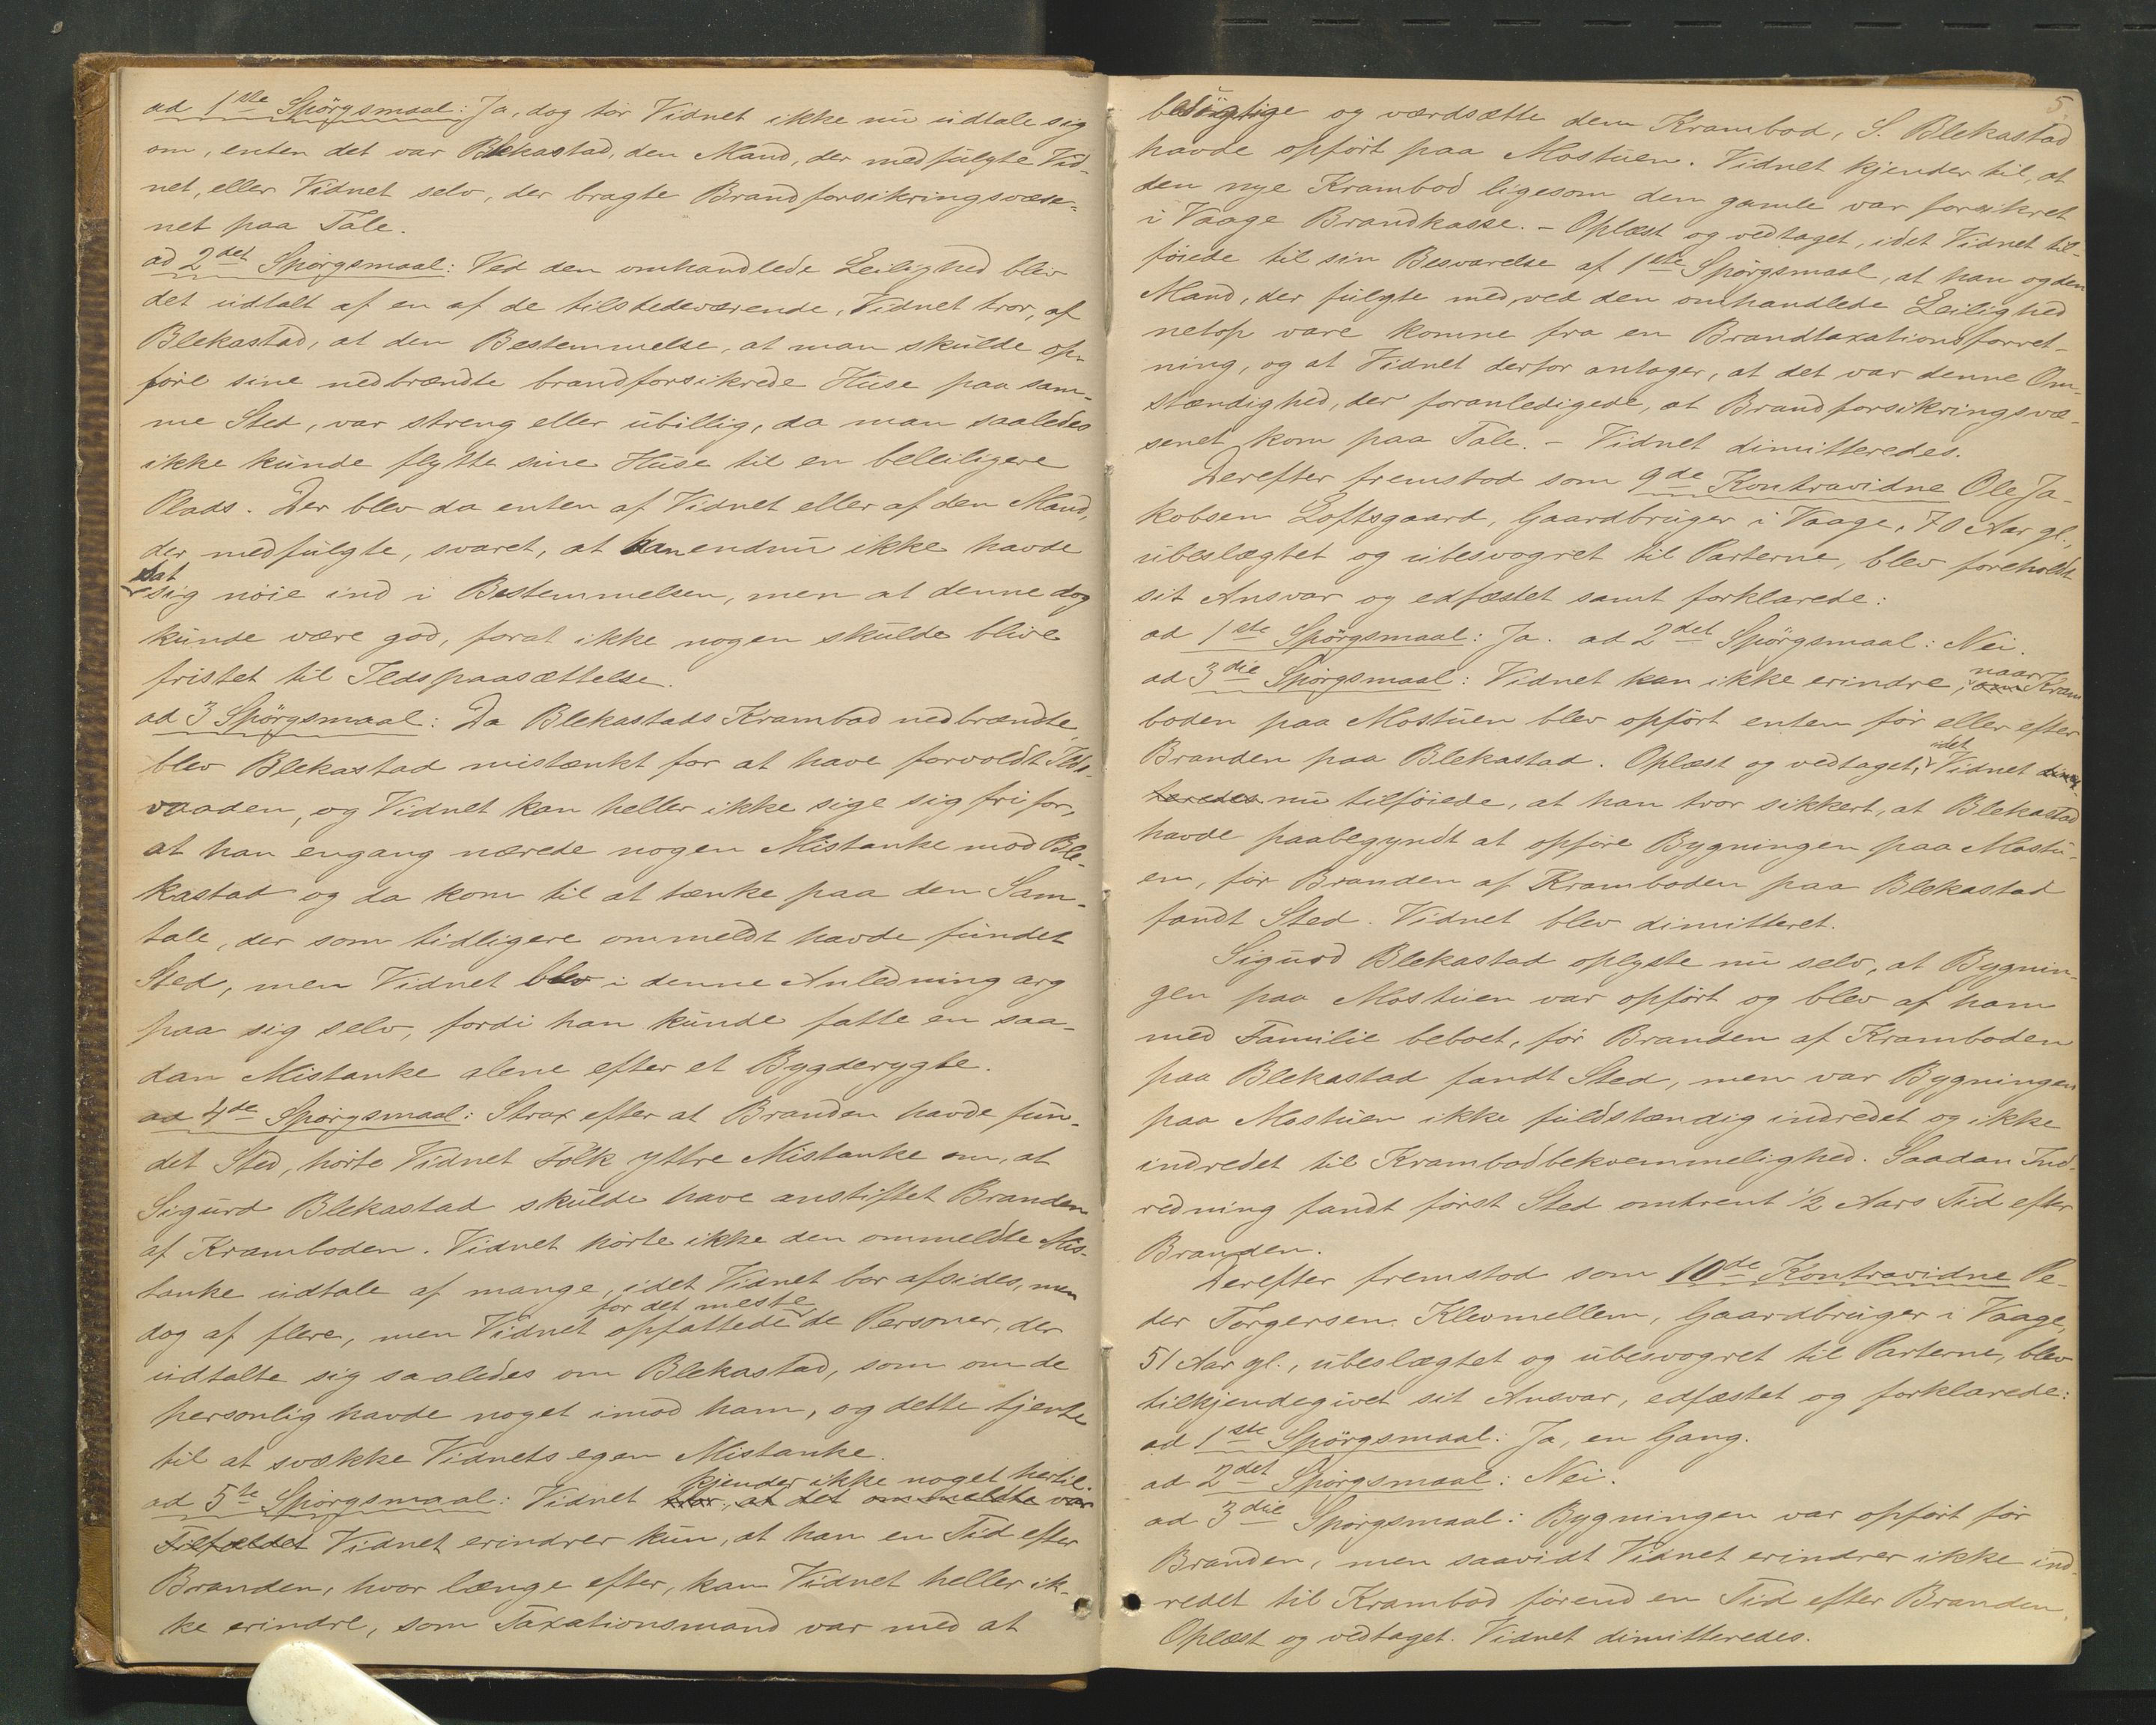 ad 1ste Spörgsmaal: Ja, dog tör Vidnet ikke nu udtale sig
om, enten det var Blekastad, den Mand, der medfulgte Vid-
net, eller Vidnet selv, der bragte Brandforsikringsvæse-
net paa Tale.
ad 2det Spörgsmaal: Ved den omhandlede Leilighed blev
det udtalt af en af de tilstedeværende, Vidnet tror, af
Blekastad, at den Bestemmelse, at man skulde op-
före sine nedbrændte brandforsikrede Huse paa sam-
me Sted, var streng eller ubillig, da man saaledes
ikke kunde flytte sine Huse til en beleiligere
Plads. Der blev da enten af Vidnet eller af den Mand,
der medfulgte, svaret, at han endnu ikke havde
sat
sig nöie ind i Bestemmelsen, men at denne dog
kunde være god, forat ikke nogen skulde blive
fristet til Ildspaasættelse.
ad 3 Spörgsmaal: Da Blekastads Krambod nedbrændte,
blev Blekastad mistænkt for at have forvoldt Ilds-
vaaden, og Vidnet kan heller ikke sige sig fri for,
at han engang nærede nogen Mistanke mod Ble-
kastad og da kom til at tænke paa den Sam-
tale, der som tidligere ommeldt havde fundet
Sted, men Vidnet blev i denne Anledning arg
paa sig selv, fordi han kunde fatte en saa-
dan Mistanke alene efter et Bygderygte.
ad 4de Spörgsmaal: Strax efter at Branden havde fun-
det Sted, hörte Vidnet Folk yttre Mistanke om, at
Sigurd Blekastad skulde have anstiftet Branden
af Kramboden. Vidnet hörte ikke den ommeldte Mis-
tanke udtale af mange, idet Vidnet bor afsides, men
for det meste
dog af flere, men Vidnet opfattede de Personer, der
udtalte sig saaledes om Blekastad, som om de
personlig havde noget imod ham, og dette tjente
til at svække Vidnets egen Mistanke.
kjender ikke noget hertil.
ad 5te Spörgsmaal: Vidnet tror, at det ommeldte var
Tilfældet Vidnet erindrer kun, at han en Tid efter
Branden, hvor længe efter, kan Vidnet heller ik-
ke erindre, som Taxationsmand var med at
5.
besigtige og værdsætte den Krambod, S. Blekastad
havde opfört paa Mostuen. Vidnet kjender til, at
den nye Krambod ligesom den gamle var forsikret
i Vaage Brandkasse. – Oplæst og vedtaget, idet Vidnet til-
föiede til sin Besvarelse af 1ste Spörgsmaal, at han og den
Mand, der fulgte med, ved den omhandlede Leilighed
netop vare komne fra en Brandtaxationsforret-
ning, og at Vidnet derfor antager, at det var denne Om-
stændighed, der foranledigede, at Brandforsikringsvæ-
senet kom paa Tale. – Vidnet dimitteredes.
Derefter fremstod som 9de Kontravidne Ole Ja-
kobsen Loftsgaard, Gaardbruger i Vaage, 70 Aar gl.,
ubeslægtet og ubesvogret til Parterne, blev foreholdt
sit Ansvar og edfæstet samt forklarede:
ad 1ste Spörgsmaal: Ja. ad 2det Spörgsmaal: Nei.
naar
ad 3die Spörgsmaal: Vidnet kan ikke erindre, om Kram
boden paa Mostuen blev opfört enten för eller efter
idet
Branden paa Blekastad. Oplæst og vedtaget, Vidnet dimit-
teredes nu tilföiede, at han tror sikkert, at Blekastad
havde paabegyndt at opföre Bygningen paa Mostu-
en, för Branden af Kramboden paa Blekastad
fandt Sted. Vidnet blev dimitteret.
Sigurd Blekastad oplyste nu selv, at Bygnin-
gen paa Mostuen var opfört og blev af ham
med Familie beboet, för Branden af Kramboden
paa Blekastad fandt Sted, men var Bygningen
paa Mostuen ikke fuldstændig indredet og ikke
indredet til Krambodbekvemmelighed. Saadan Ind-
redning fandt först Sted omtrent 1/2 Aars Tid efter
Branden.
Derefter fremstod som 10de Kontravidne Pe-
der Torgersen Klevmellem, Gaardbruger i Vaage,
51 Aar gl., ubeslægtet og ubesvogret til Parterne, blev
tilkjendegivet sit Ansvar, edfæstet og forklarede:
ad 1ste Spörgsmaal: Ja, en Gang.
ad 2det Spörgsmaal: Nei.
ad 3die Spörgsmaal: Bygningen var opfört för
Branden, men saavidt Vidnet erindrer ikke ind-
redet til Krambod förend en Tid efter Branden.
Oplæst og vedtaget. Vidnet dimitteredes.